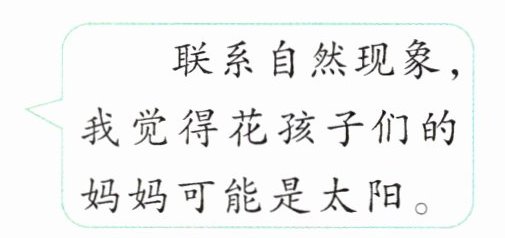 联系自然现象，
我觉得花孩子们的
妈妈可能是太阳。